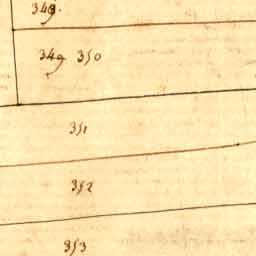 348.
349 350
351
352
353